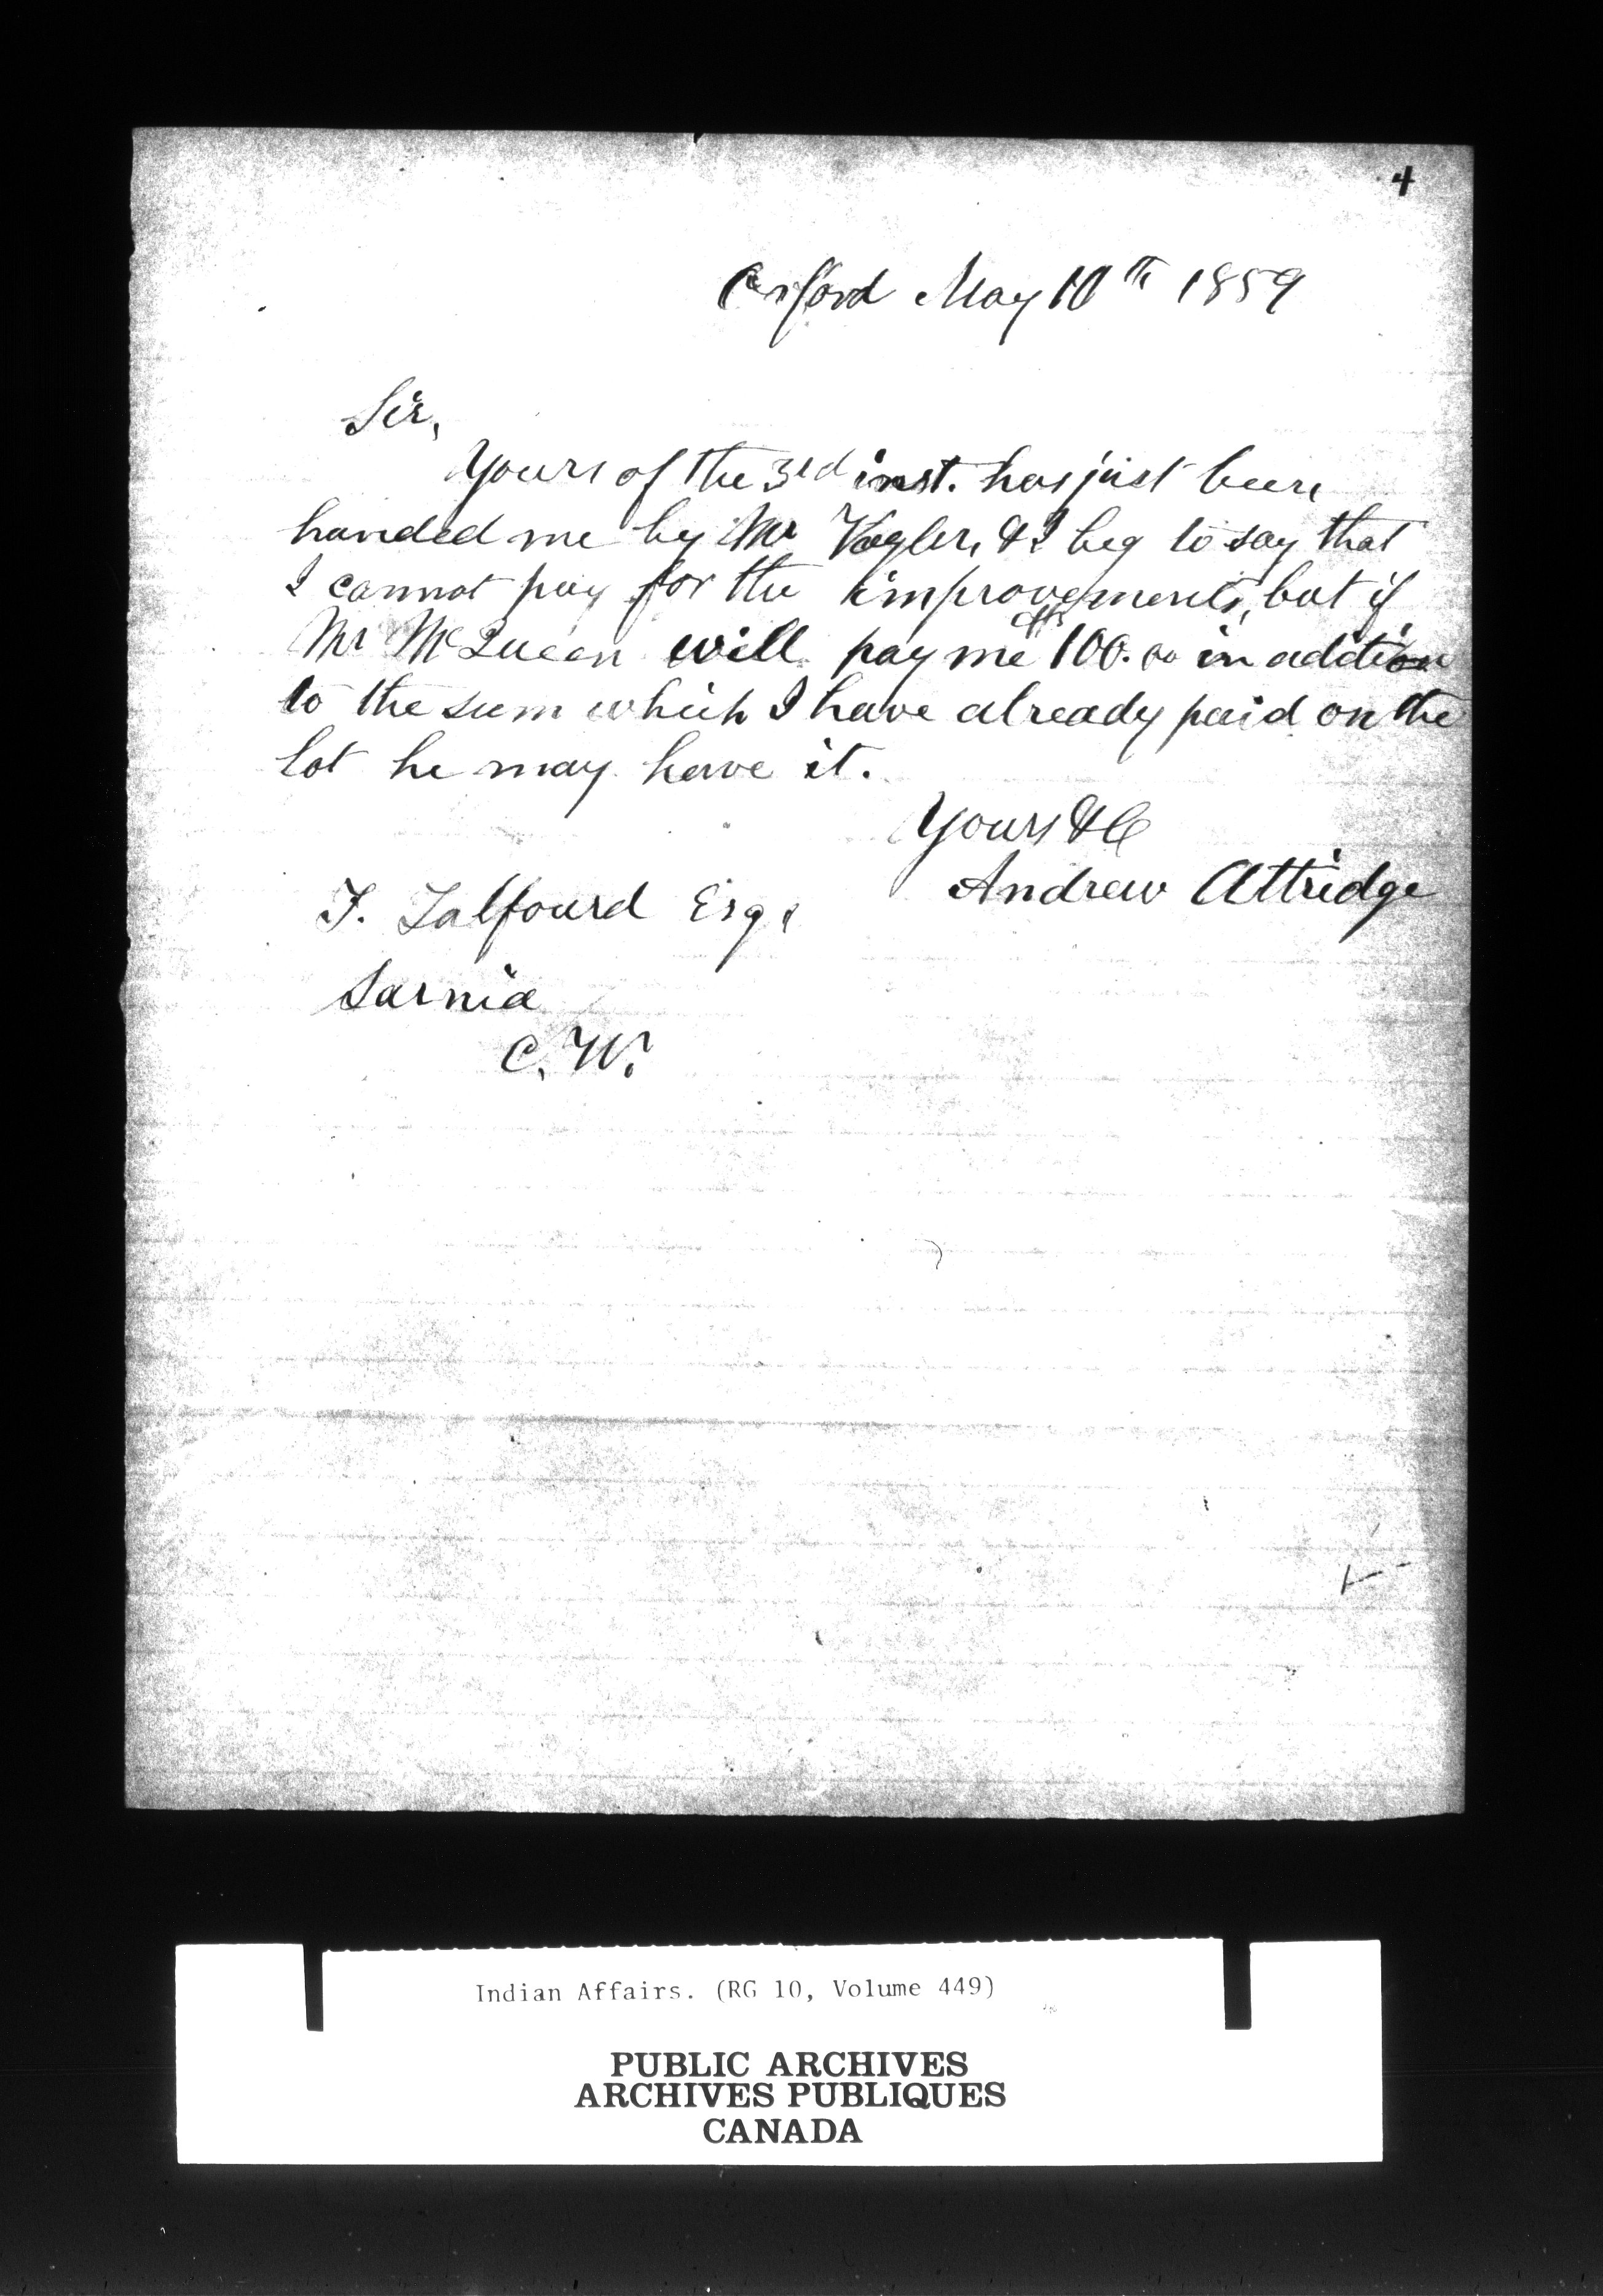 4
Orford May 10th 1859
Sir,
Yours of the 3rd inst. has just been
handed me by Mr Vogler, & I beg to say that
I cannot pay for the improvements, but if
Mr McQueen will pay me $100.00 in addition
to the sum which I have already paid on the
lot he may have it.
Yours &c
Andrew Attridge
F. Talfourd Esq.
Sarnia
C. W.
Indian Affairs. (RG 10, Volume 449)
PUBLIC ARCHIVES
ARCHIVES PUBLIQUES
CANADA